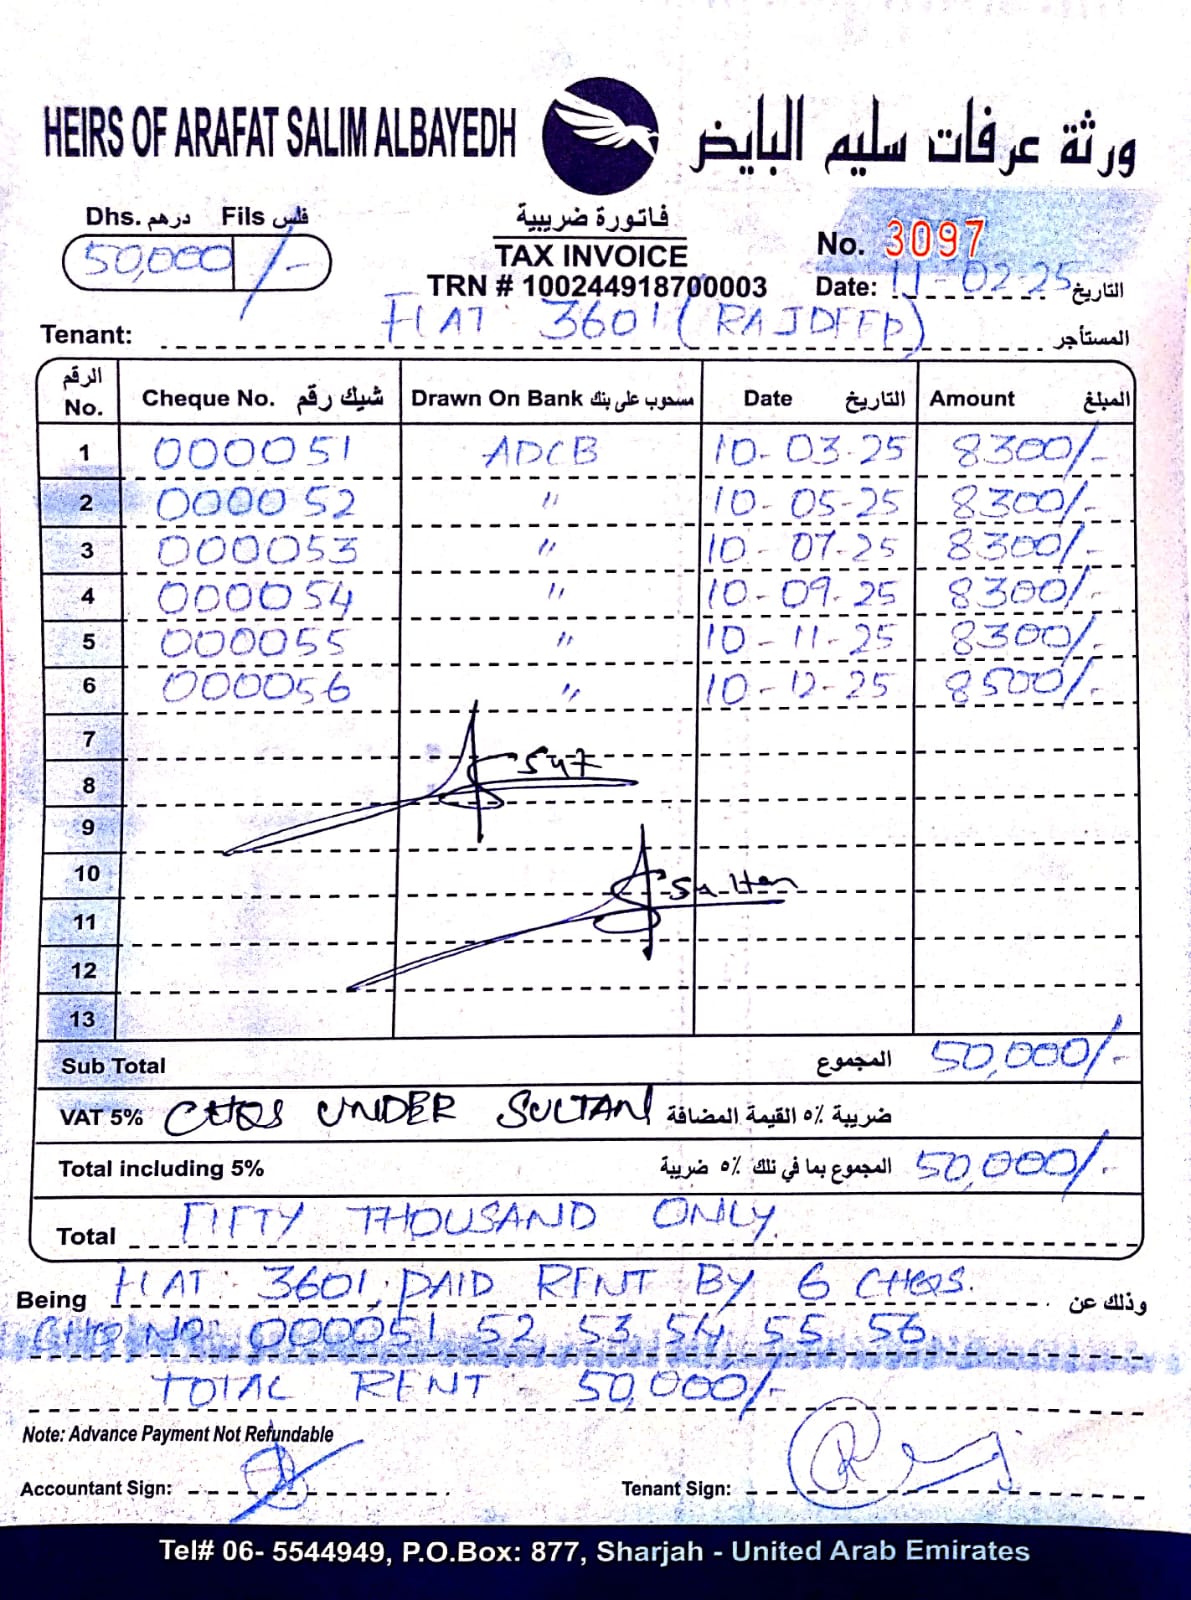 HEIRS OF ARAFAT SALIM ALBAYEDH ورثة عرفات سليم البايض
Dhs. درهم Fils فلس
50,000 /-
فاتورة ضريبية
TAX INVOICE
TRN # 100244918700003
No. 3097
Date: 11-02-25 التاريخ
Tenant: FLAT: 3601 (RAJDEEP) المستأجر
الرقم No. Cheque No. شيك رقم Drawn On Bank مسحوب على بنك Date التاريخ Amount المبلغ
1 000051 ADCB 10-03-25 8300/-
2 000052 " 10-05-25 8300/-
3 000053 " 10-07-25 8300/-
4 000054 " 10-09-25 8300/-
5 000055 " 10-11-25 8300/-
6 000056 " 10-12-25 8500/-
7
8
9
10
11
12
13
Sub Total المجموع 50,000/-
VAT 5% CHQS UNDER SULTAN ضريبة ٥٪ القيمة المضافة
Total including 5% المجموع بما في ذلك ٥٪ ضريبة 50,000/-
Total FIFTY THOUSAND ONLY.
Being FLAT: 3601, PAID RENT BY 6 CHQS. وذلك عن
CHQ NO: 000051 52 53 54 55 56
TOTAL RENT - 50,000/-
Note: Advance Payment Not Refundable
Accountant Sign: Tenant Sign:
Tel# 06- 5544949, P.O.Box: 877, Sharjah - United Arab Emirates